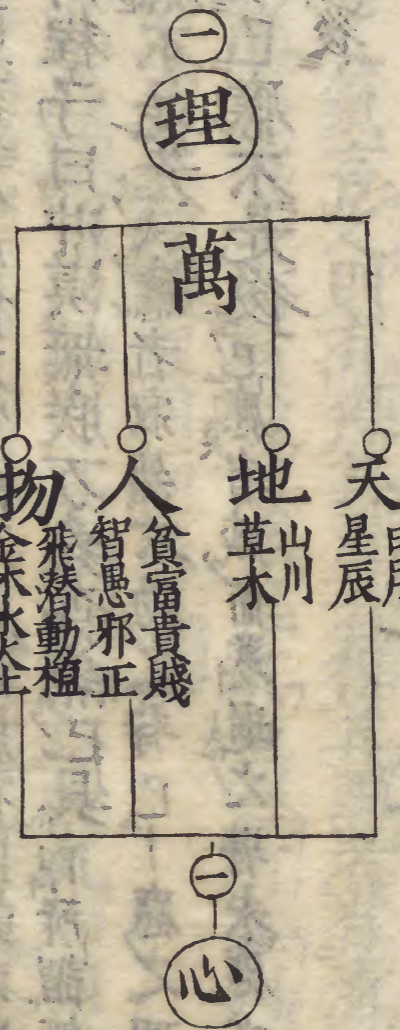 一
理
萬
天
日月
星辰
地
山川
草木
人
貧富貴賤
智愚邪正
物
飛潛動植
金木水火土
一
心